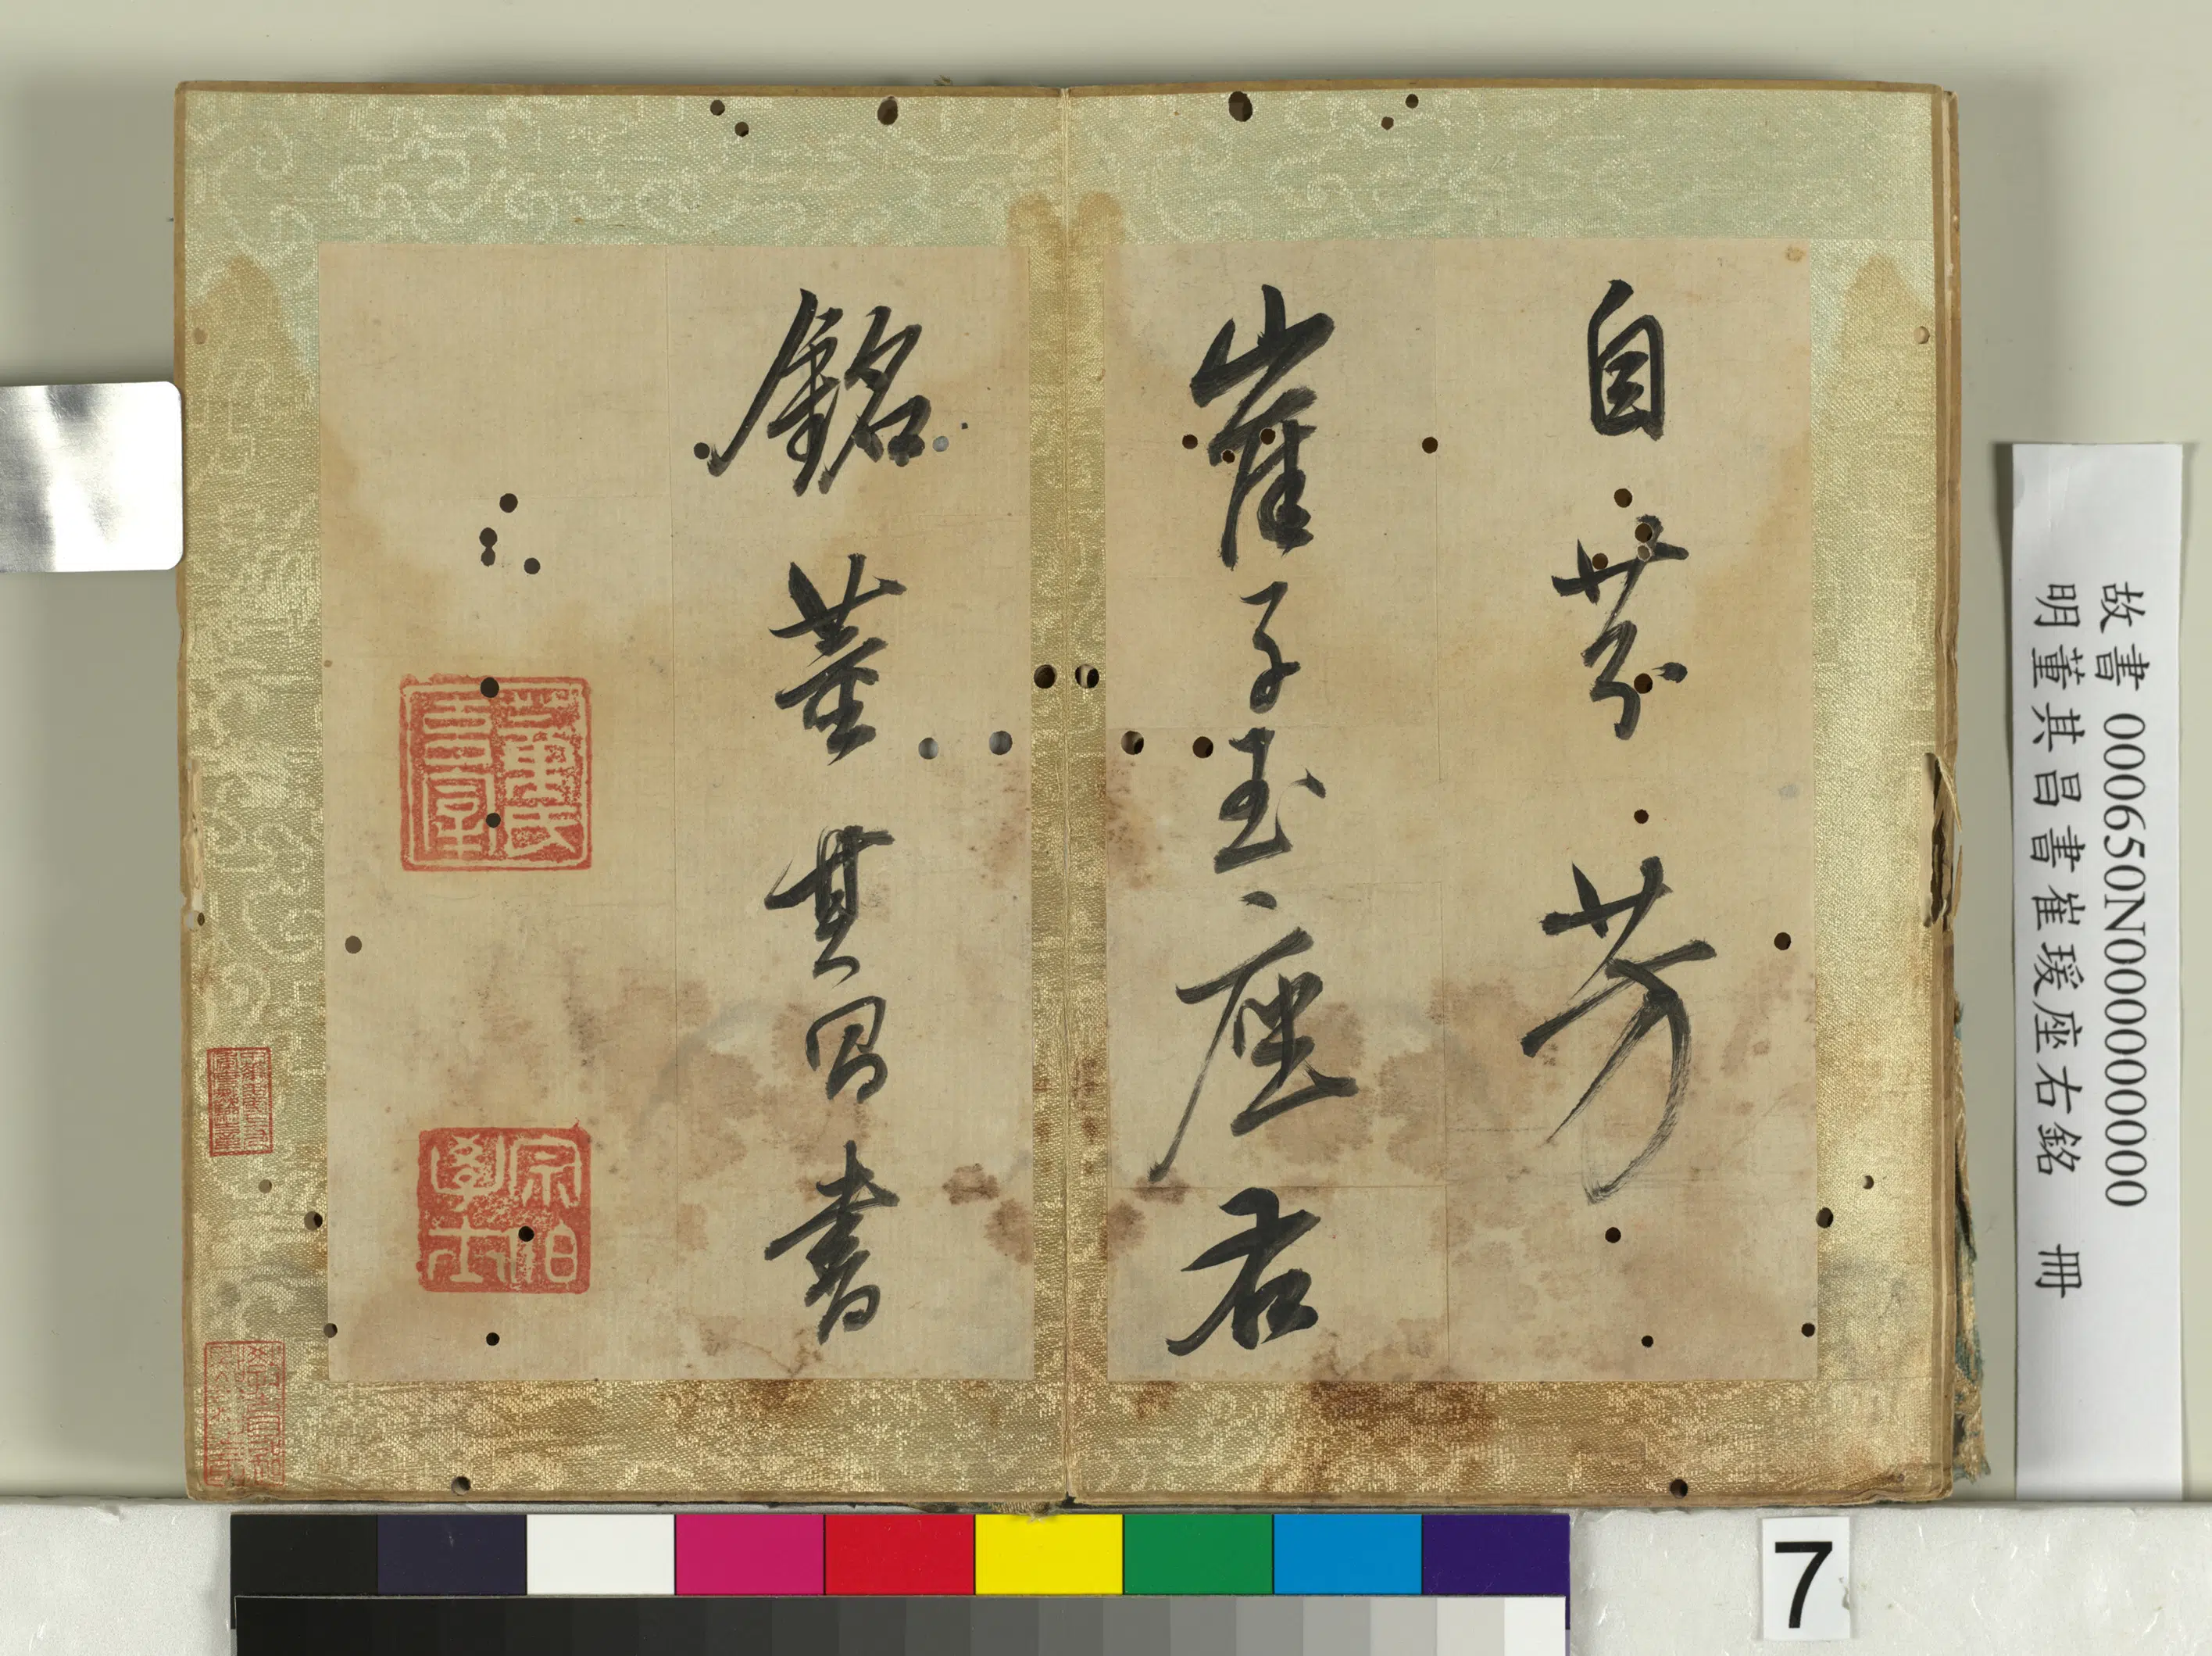 自芬芳
崔子玉座右
銘董其昌書
宗伯學士
故書 000650N000000000
明董其昌書崔瑗座右銘 冊
7